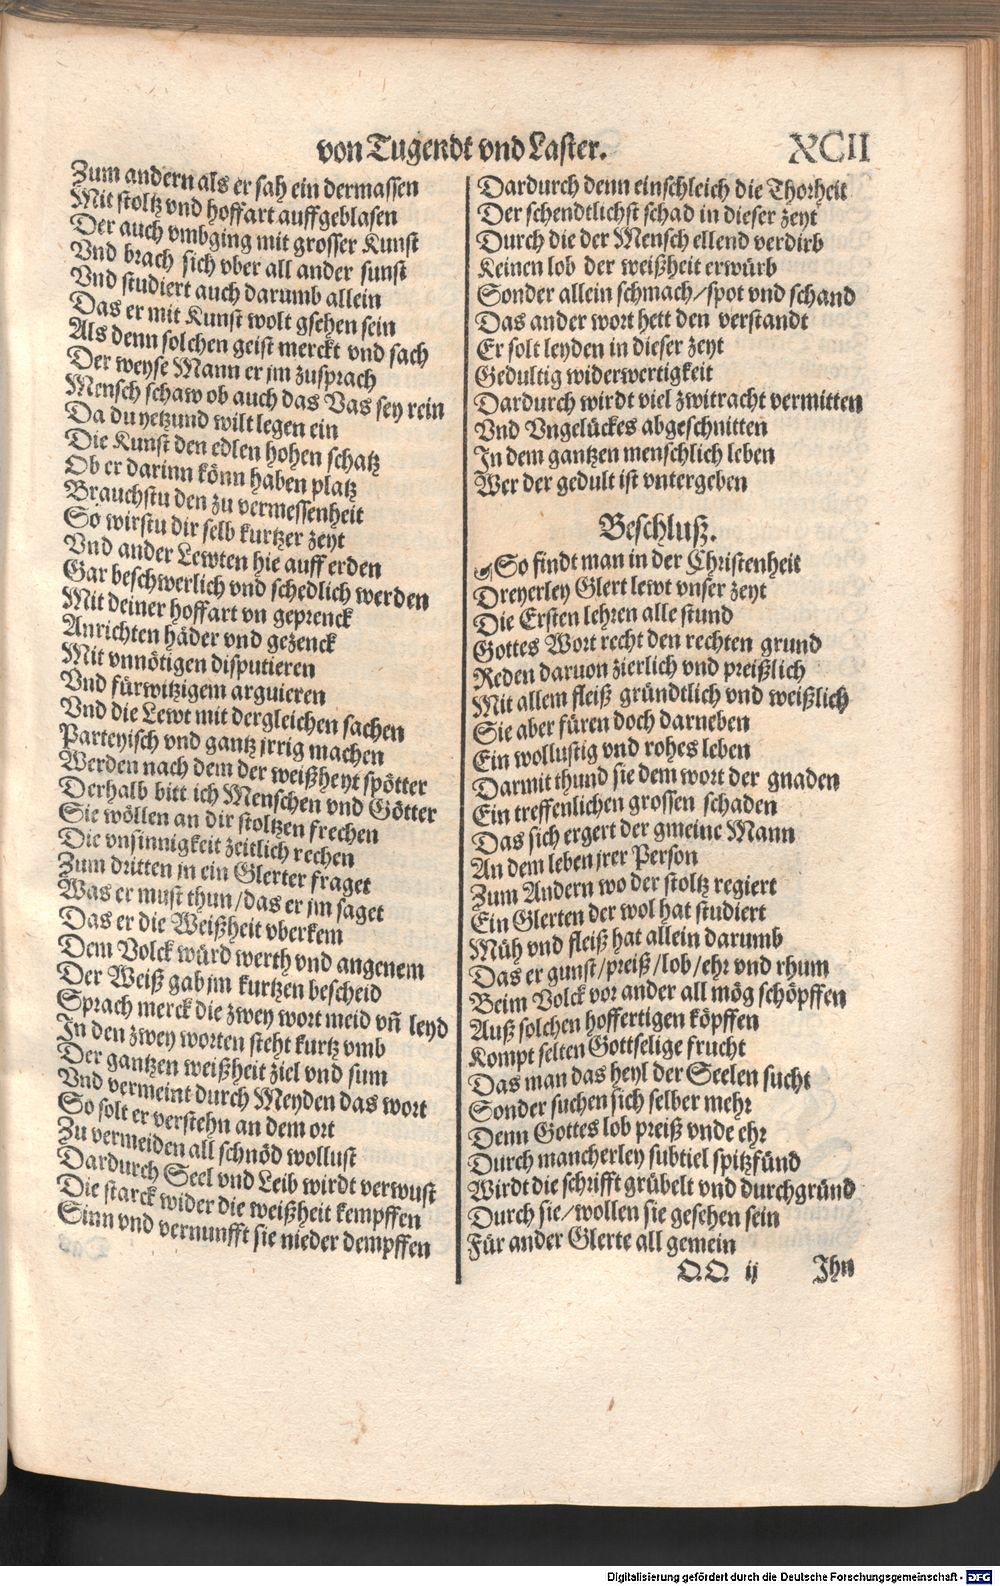 von Tugendt vnd Laster.
XCII
Zum andern als er sah ein dermassen
Mit stoltz vnd hoffart auffgeblasen
Der auch vmbging mit grosser Kunst
Vnd brach sich vber all ander sunst
Vnd studiert auch darumb allein
Das er mit Kunst wolt gsehen sein
Als denn solchen geist merckt vnd sach
Der weyse Mann er jm zusprach
Mensch schaw ob auch das Vas sey rein
Da du yetzund wilt legen ein
Die Kunst den edlen hohen schatz
Ob er darinn könn haben platz
Brauchstu den zu vermessenheit
So wirstu dir selb kurtzer zeyt
Vnd ander Lewten hie auff erden
Gar beschwerlich vnd schedlich werden
Mit deiner hoffart vn geprenck
Anrichten häder vnd gezenck
Mit vnnötigen disputieren
Vnd fürwitzigem arguieren
Vnd die Lewt mit dergleichen sachen
Parteyisch vnd gantz jrrig machen
Werden nach dem der weißheyt spötter
Derhalb bitt ich Menschen vnd Götter
Sie wöllen an dir stoltzen frechen
Die vnsinnigkeit zeitlich rechen
Zum dritten jn ein Glerter fraget
Was er must thun/das er jm saget
Das er die Weißheit vberkem
Dem Volck würd werth vnd angenem
Der Weiß gab jm kurtzen bescheid
Sprach merck die zwey wort meid vñ leyd
In den zwey worten steht kurtz vmb
Der gantzen weißheit ziel vnd sum
Vnd vermeint durch Meyden das wort
So solt er verstehn an dem ort
Zu vermeiden all schnöd wollust
Dardurch Seel vnd Leib wirdt verwust
Die starck wider die weißheit kempffen
Sinn vnd vernunfft sie nieder dempffen
Dardurch denn einschleich die Thorheit
Der schendtlichst schad in dieser zeyt
Durch die der Mensch ellend verdirb
Keinen lob der weißheit erwürb
Sonder allein schmach/spot vnd schand
Das ander wort hett den verstandt
Er solt leyden in dieser zeyt
Gedultig widerwertigkeit
Dardurch wirdt viel zwitracht vermitten
Vnd Vngelückes abgeschnitten
In dem gantzen menschlich leben
Wer der gedult ist vntergeben
Beschluß.
So findt man in der Christenheit
Dreyerley Glert lewt vnser zeyt
Die Ersten lehren alle stund
Gottes Wort recht den rechten grund
Reden daruon zierlich vnd preißlich
Mit allem fleiß gründtlich vnd weißlich
Sie aber füren doch darneben
Ein wollustig vnd rohes leben
Darmit thund sie dem wort der gnaden
Ein treffenlichen grossen schaden
Das sich ergert der gmeine Mann
An dem leben jrer Person
Zum Andern wo der stoltz regiert
Ein Glerten der wol hat studiert
Müh vnd fleiß hat allein darumb
Das er gunst/preiß/lob/ehr vnd rhum
Beim Volck vor ander all mög schöpffen
Auß solchen hoffertigen köpffen
Kompt selten Gottselige frucht
Das man das heyl der Seelen sucht
Sonder suchen sich selber mehr
Denn Gottes lob preiß vnde ehr
Durch mancherley subtiel spitzfünd
Wirdt die schrifft grübelt vnd durchgründ
Durch sie/wollen sie gesehen sein
Für ander Glerte all gemein
O.O. ij
Ihn
Digitalisierung gefördert durch die Deutsche Forschungsgemeinschaft - DFG